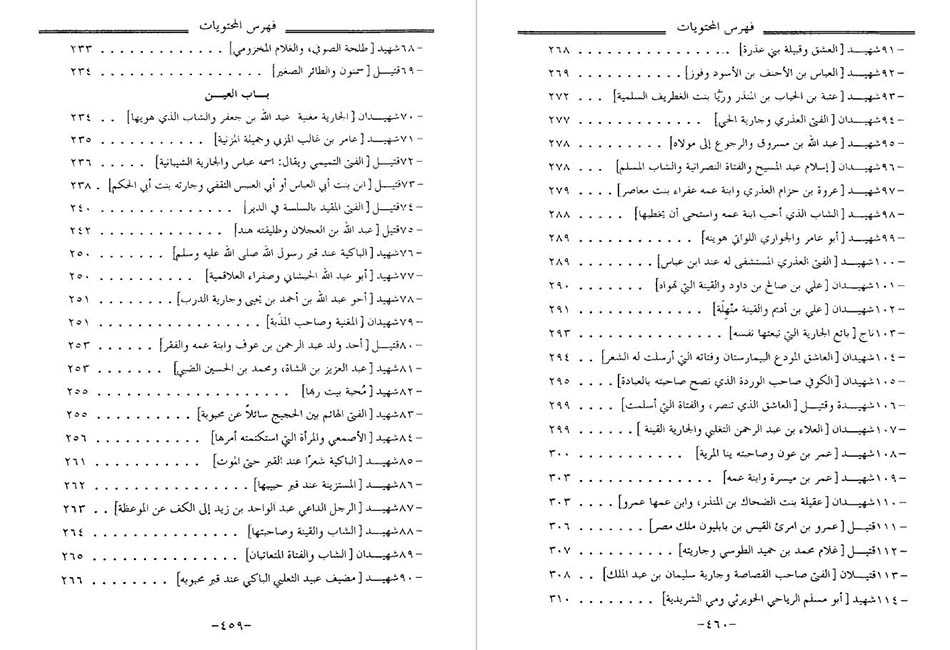 فهرس المحتويات
-٦٨شهيد [ طلحة الصوفي، والغلام المخزومي] . . . . . . . . . . . . . ٢٣٣
-٦٩قتيل [ سمنون والطائر الصغير] . . . . . . . . . . . . . . . . . ٢٣٤
بـاب العيـن
-٧٠شهيدان [ الجارية مغنية عبد الله بن جعفر والشاب الذي هويها] . . ٢٣٤
-٧١شهيـد [ عامر بن غالب المزني وجميلة المزنية] . . . . . . . ٢٣٥
-٧٢قتيـل [ الفتى التميمي ويقال: اسمه عباس والجارية الشيبانية] . . . . ٢٣٦
-٧٣قتيـل [ ابن بنت أبي العباس أو أبي العبس الثقفي وجارته بنت أبي الحكم] . ٢٣٨
-٧٤قتيـل [ الفتى المقيد بالسلسة في الدير] . . . . . . . . . . . . . . ٢٤٠
-٧٥قتيل [ عبد الله بن العجلان وطليقته هند] . . . . . . . . . . . . ٢٤٢
-٧٦شهيد [ الباكية عند قبر رسول الله صلى الله عليه وسلم] . . . . . . . ٢٥٠
-٧٧شهيد [ أبو عبد الله الحبشاني وصفراء العلاقمية] . . . . . . . . . ٢٥٠
-٧٨شهيد [ أخو عبد الله بن أحمد بن يحيى وجارية الدرب] . . . . . . ٢٥١
-٧٩شهيدان [ المغنية وصاحب المذبة] . . . . . . . . . . . . . . . . ٢٥١
-٨٠قتيـل [ أحد ولد عبد الرحمن بن عوف وابنة عمه والفقر] . . . . . . ٢٥٣
-٨١شهيد [ عبد العزيز بن الشاة، ومحمد بن الحسين الضبي] . . . . . . ٢٥٣
-٨٢شهيد [ مُحبة بيت ربها] . . . . . . . . . . . . . . . . . . . ٢٥٥
-٨٣شهيـد [ الفتى الهائم بين الحجيج سائلاً عن محبوبة] . . . . . . . . ٢٥٥
-٨٤شهيد [ الأصمعي والمرأة التي استكتمته أمرها] . . . . . . . . . . ٢٥٦
-٨٥شهيـد [ الباكية شعرًا عند القبر حتى الموت] . . . . . . . . . . ٢٦١
-٨٦شهيـد [ المستزينة عند قبر حبيبها] . . . . . . . . . . . . . . ٢٦٢
-٨٧شهيد [ الرجل الداعي عبد الواحد بن زيد إلى الكف عن الموعظة] . . ٢٦٣
-٨٨شهيـد [ الشاب والقينة وصاحبتها] . . . . . . . . . . . . . . ٢٦٤
-٨٩شهيدان [ الشاب والفتاة المتعاتبان] . . . . . . . . . . . . . . ٢٦٥
-٩٠شهيـد [ مضيف عبيد الثعلبي الباكي عند قبر محبوبه] . . . . . . . . ٢٦٦
-٤٥٩-
فهرس المحتويات
-٩١شهيـد [ العشق وقبيلة بني عذرة] . . . . . . . . . . . . . . . . ٢٦٨
-٩٢شهيـد [ العباس بن الأحنف بن الأسود وفوز] . . . . . . . . . . . ٢٦٩
-٩٣شهيـد [ عتبة بن الحباب بن المنذر وريَّا بنت الغطريف السلمية] . . . ٢٧٢
-٩٤شهيدان [ الفتى العذري وجارية الحي] . . . . . . . . . . . . . ٢٧٧
-٩٥شهيد [ عبد الله بن مسروق والرجوع إلى مولاه] . . . . . . . . . . ٢٧٨
-٩٦شهيـدان [ إسلام عبد المسيح والفتاة النصرانية والشاب المسلم] . . . . ٢٧٨
-٩٧شهيد [ عروة بن حزام العذري وابنة عمه عفراء بنت معاصر] . . . . ٢٧٩
-٩٨شهيـد [ الشاب الذي أحب ابنة عمه واستحى أن يخطبها] . . . . . ٢٨٨
-٩٩شهيـد [ أبو عامر والجواري اللواتي هوينه] . . . . . . . . . . . . ٢٨٩
-١٠٠شهيـد [ الفتى العذري المستشفى له عند ابن عباس] . . . . . . . . ٢٨٩
-١٠١شهيـدان [ علي بن صالح بن داود والقينة التي تهواه] . . . . . . . ٢٩٠
-١٠٢شهيـدان [ علي بن أديم والقينة منْهِلَة] . . . . . . . . . . . . ٢٩١
-١٠٣ناج [ بائع الجارية التي تبعتها نفسه] . . . . . . . . . . . . . . ٢٩٣
-١٠٤شهيدان [ العاشق المودع البيمارستان وفتاته التي أرسلت له الشعر] . . ٢٩٤
-١٠٥شهيدان [ الكوفي صاحب الوردة الذي نصح صاحبته بالعبادة] . . . . ٢٩٥
-١٠٦شهيـدة وقتيـل [ العاشق الذي تنصر، والفتاة التي أسلمت] . . . . ٢٩٩
-١٠٧شهيـدان [ العلاء بن عبد الرحمن التغلبي والجارية القينة ] . . . . . . ٢٩٩
-١٠٨شهيـد [ عمر بن عون وصاحبته بنا المرية] . . . . . . . . . . . ٣٠٠
-١٠٩شهيـد [ عمر بن ميسرة وابنة عمه] . . . . . . . . . . . . . . ٣٠٣
-١١٠شهيدان [ عقيلة بنت الضحاك بن المنذر، وابن عمها عمرو] . . . . ٣٠٣
-١١١قتيـل [ عمرو بن امرئ القيس بن بابليون ملك مصر] . . . . . . . ٣٠٦
-١١٢قتيـل [ غلام محمد بن حميد الطوسي وجاريته] . . . . . . . . . ٣٠٧
-١١٣قتيـلان [ الفتى صاحب القصاصة وجارية سليمان بن عبد الملك] . . ٣٠٨
-١١٤شهيد [ أبو مسلم الرياحي الحويرثي ومي الشريدية] . . . . . . . . ٣١٠
-٤٦٠-